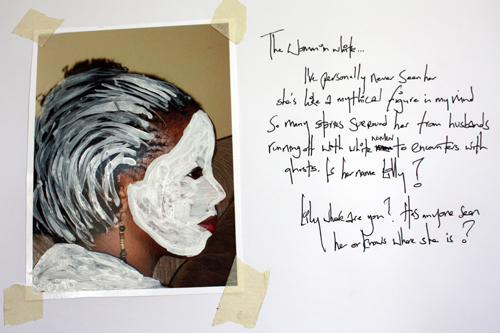 The Woman in white...
I've personally never seen her
she's like a mythical figure in my mind
So many stories surround her from husbands
running off with white women to encounters with
ghosts. Is her name Lilly?
Lilly where are you? Has anyone seen
her or knows where she is?